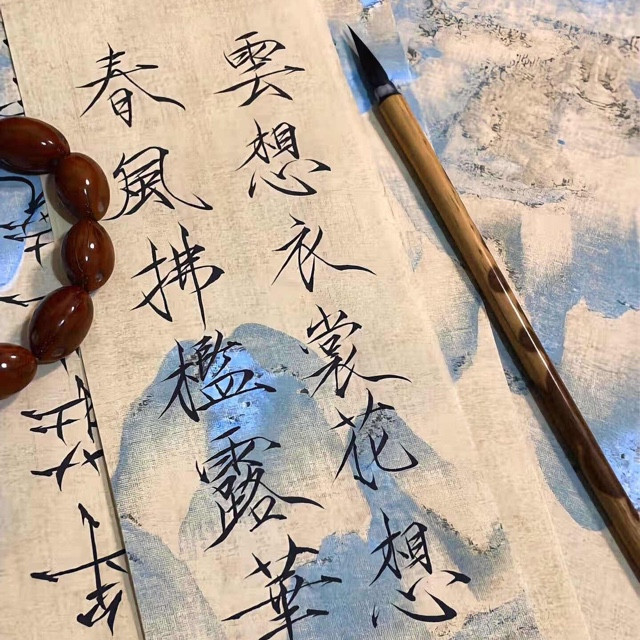 雲想衣裳花想
春風拂檻露華